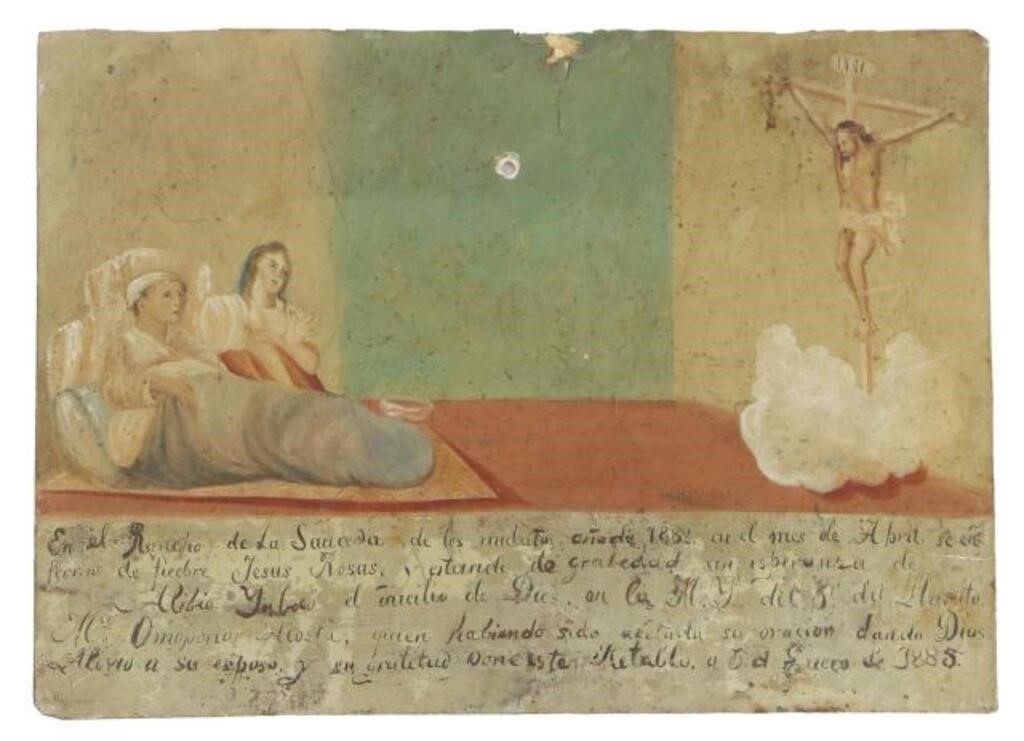 INRI
En el Rancho de La Sauceda de los mulatos año de 1882 en el mes de Abril se en
fermo de fiebre Jesus Rosas, y estando de grabedad sin isperanza de
Alibio Ynboco el aucilio de Dios, en la M. Y. del S. del Llanito
Ma. Omoponor Acosta, quien habiendo sido su oracion dando Dios
Alivio a su esposo, y en gratitud pone este Retablo, a 5 d Enero de 1885.